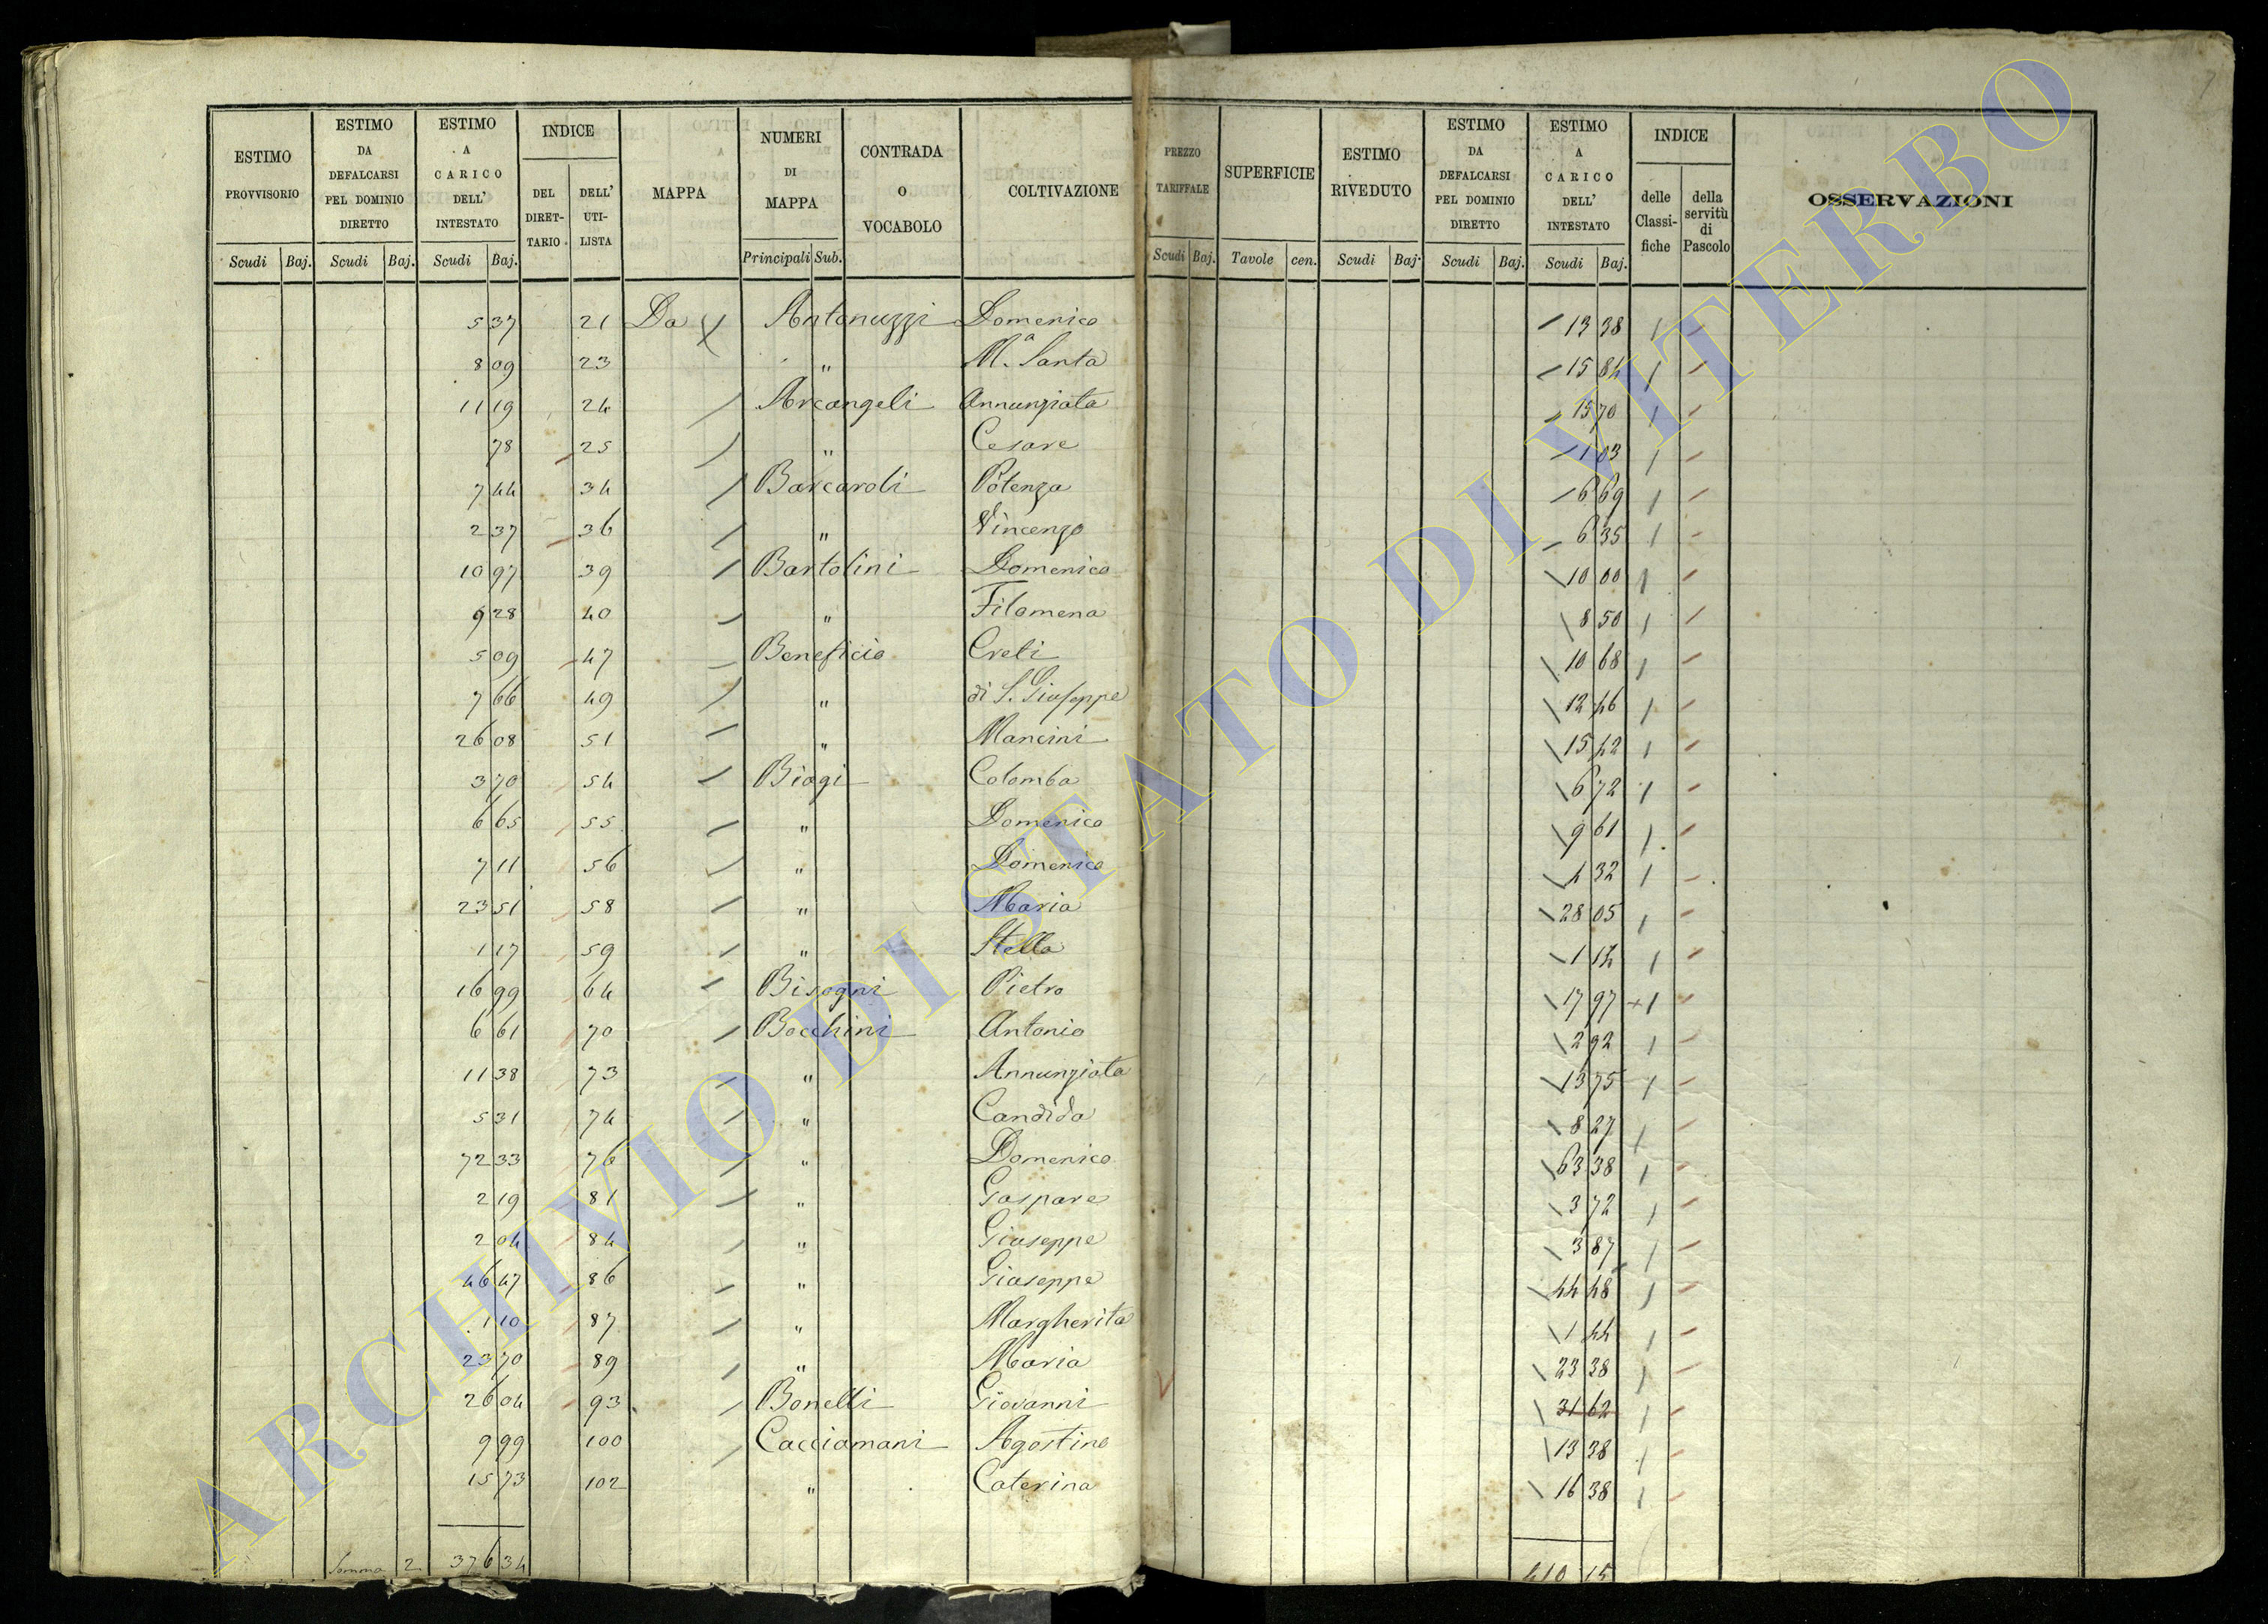 ESTIMO PROVVISORIO | ESTIMO DA DEFALCARSI PEL DOMINIO DIRETTO | ESTIMO A CARICO DELL' INTESTATO | INDICE | MAPPA | NUMERI DI MAPPA | CONTRADA O VOCABOLO | COLTIVAZIONE | PREZZO TARIFFALE | SUPERFICIE | ESTIMO RIVEDUTO | ESTIMO DA DEFALCARSI PEL DOMINIO DIRETTO | ESTIMO A CARICO DELL' INTESTATO | INDICE | OSSERVAZIONI
DEL DIRETTARIO | DELL' UTILISTA | delle Classifiche | della servitù di Pascolo
Scudi Baj. | Scudi Baj. | Scudi Baj. | Principali Sub. | Scudi Baj. | Tavole cen. | Scudi Baj. | Scudi Baj. | Scudi Baj.
5 37 21 Da Antonuzzi Domenico 13 38
8 09 23 " M.a Santa 15 84
11 19 24 Arcangeli Annunziata 15 70
78 25 " Cesare 1 03
7 44 34 Barcaroli Potenza 6 69
2 37 36 " Vincenzo 6 35
10 97 39 Bartolini Domenico 10 00
9 28 40 " Filomena 8 50
5 09 47 Beneficio Creti 10 68
7 66 49 " di S. Giuseppe 12 46
26 08 51 " Mancini 15 42
3 70 54 Biagi Colomba 6 72
6 65 55 " Domenico 9 61
7 11 56 " Domenico 4 32
23 51 58 " Maria 28 05
1 17 59 " Stella 1 14
16 99 64 Bisogni Pietro 17 97
6 61 70 Bocchini Antonio 2 92
11 38 73 " Annunziata 13 75
5 31 74 " Candida 8 27
72 33 76 " Domenico 63 38
2 19 81 " Gaspare 3 72
2 04 84 " Giuseppe 3 87
46 47 86 " Giuseppe 44 48
1 10 87 " Margherita 1 44
23 70 89 " Maria 23 38
26 04 93 Bonelli Giovanni 31 62
9 99 100 Cacciamani Agostino 13 38
15 73 102 " Caterina 16 38
Somma 2 376 34 410 15
ARCHIVIO DI STATO DI VITERBO